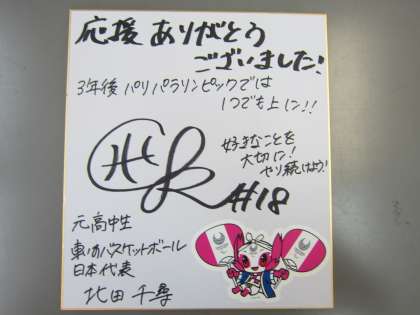 応援ありがとう
ございました!
3年後パリパラリンピックでは
1つでも上に!!
好きなことを
大切に!
やり続けよう!
#18
元高中生
車いすバスケットボール
日本代表
北田 千尋